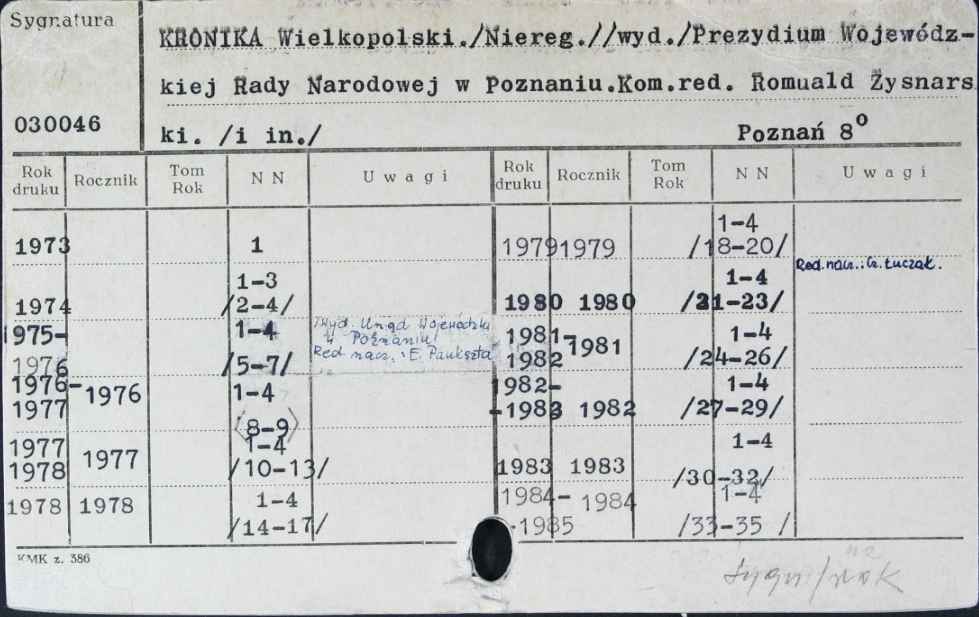 Sygnatura
KRONIKA Wielkopolski./Niereg.//wyd./Prezydium Wojewódz-
kiej Rady Narodowej w Poznaniu.Kom.red. Romuald Zysnars
030046
ki. /i in./ Poznań 8°
Rok druku Rocznik Tom Rok N N U w a g i Rok druku Rocznik Tom Rok N N U w a g i
1973 1
1-4
1979 1979 /18-20/
Red.nacz.: Cz. Łuczak.
1-3
1974 /2-4/
1-4
1980 1980 /21-23/
1975- 1-4
1976 /5-7/
Wyd. Urząd Wojewódzki
w Poznaniu
Red. nacz.: E. Paukszta
1981- 1-4
1982 1981 /24-26/
1976- 1976 1-4
1977
(8-9)
1982- 1-4
-1983 1982 /27-29/
1977 1977 1-4
1978 /10-13/
1-4
1983 1983 /30-32/
1978 1978 1-4
/14-17/
1984- 1984 1-4
-1985 /33-35 /
KMK z. 386
na